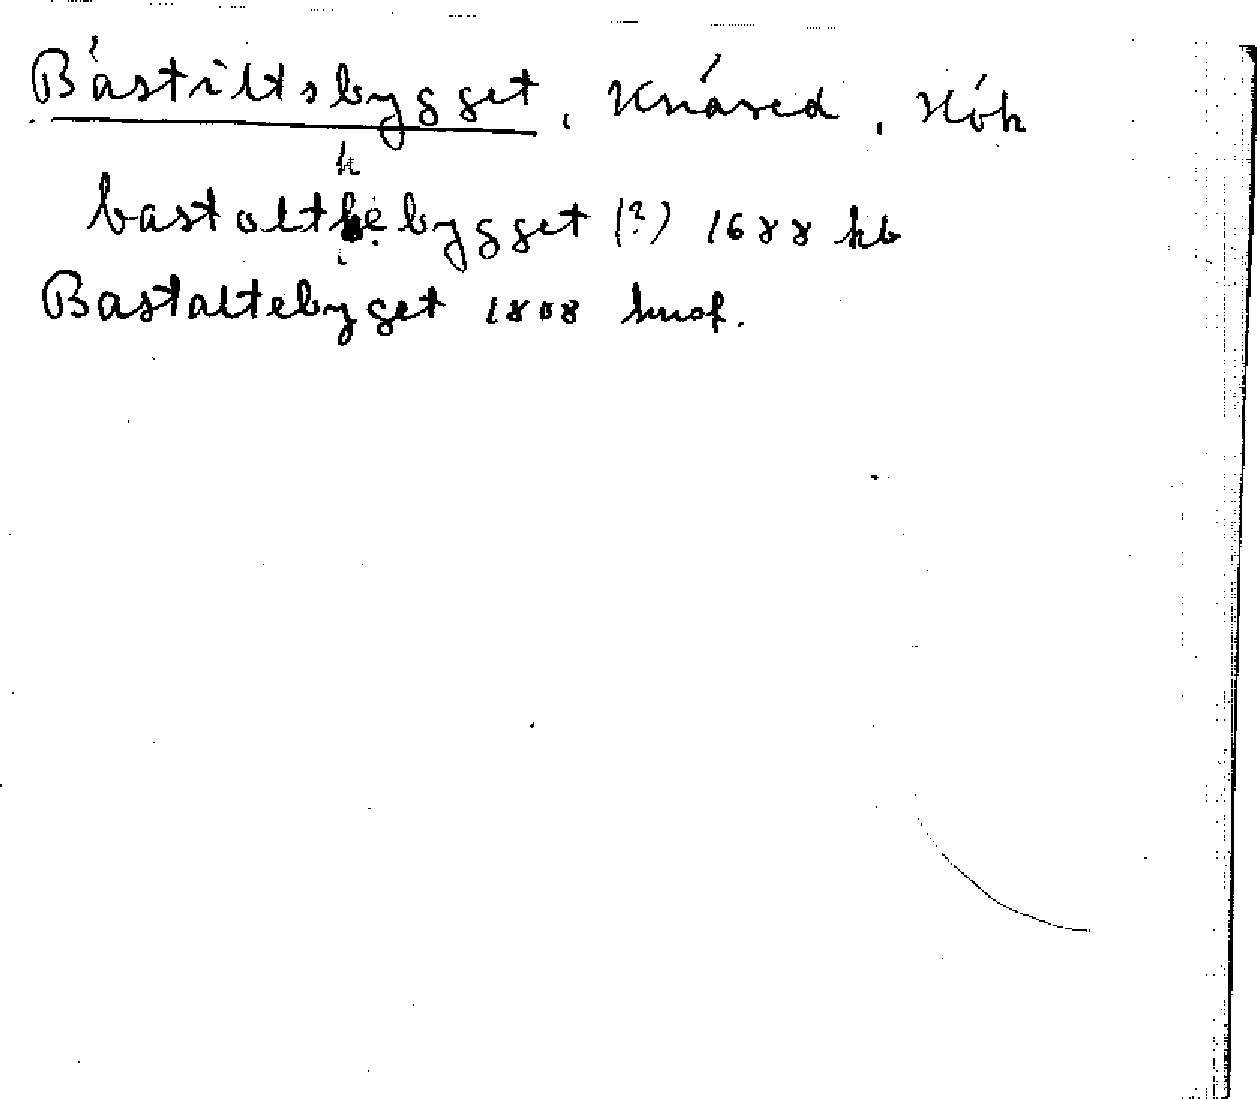 Båstiltsbygget, Knäred, Höh
h
bastolthebygget (?) 1688 kb
Bastaltebyget 1808 husf.